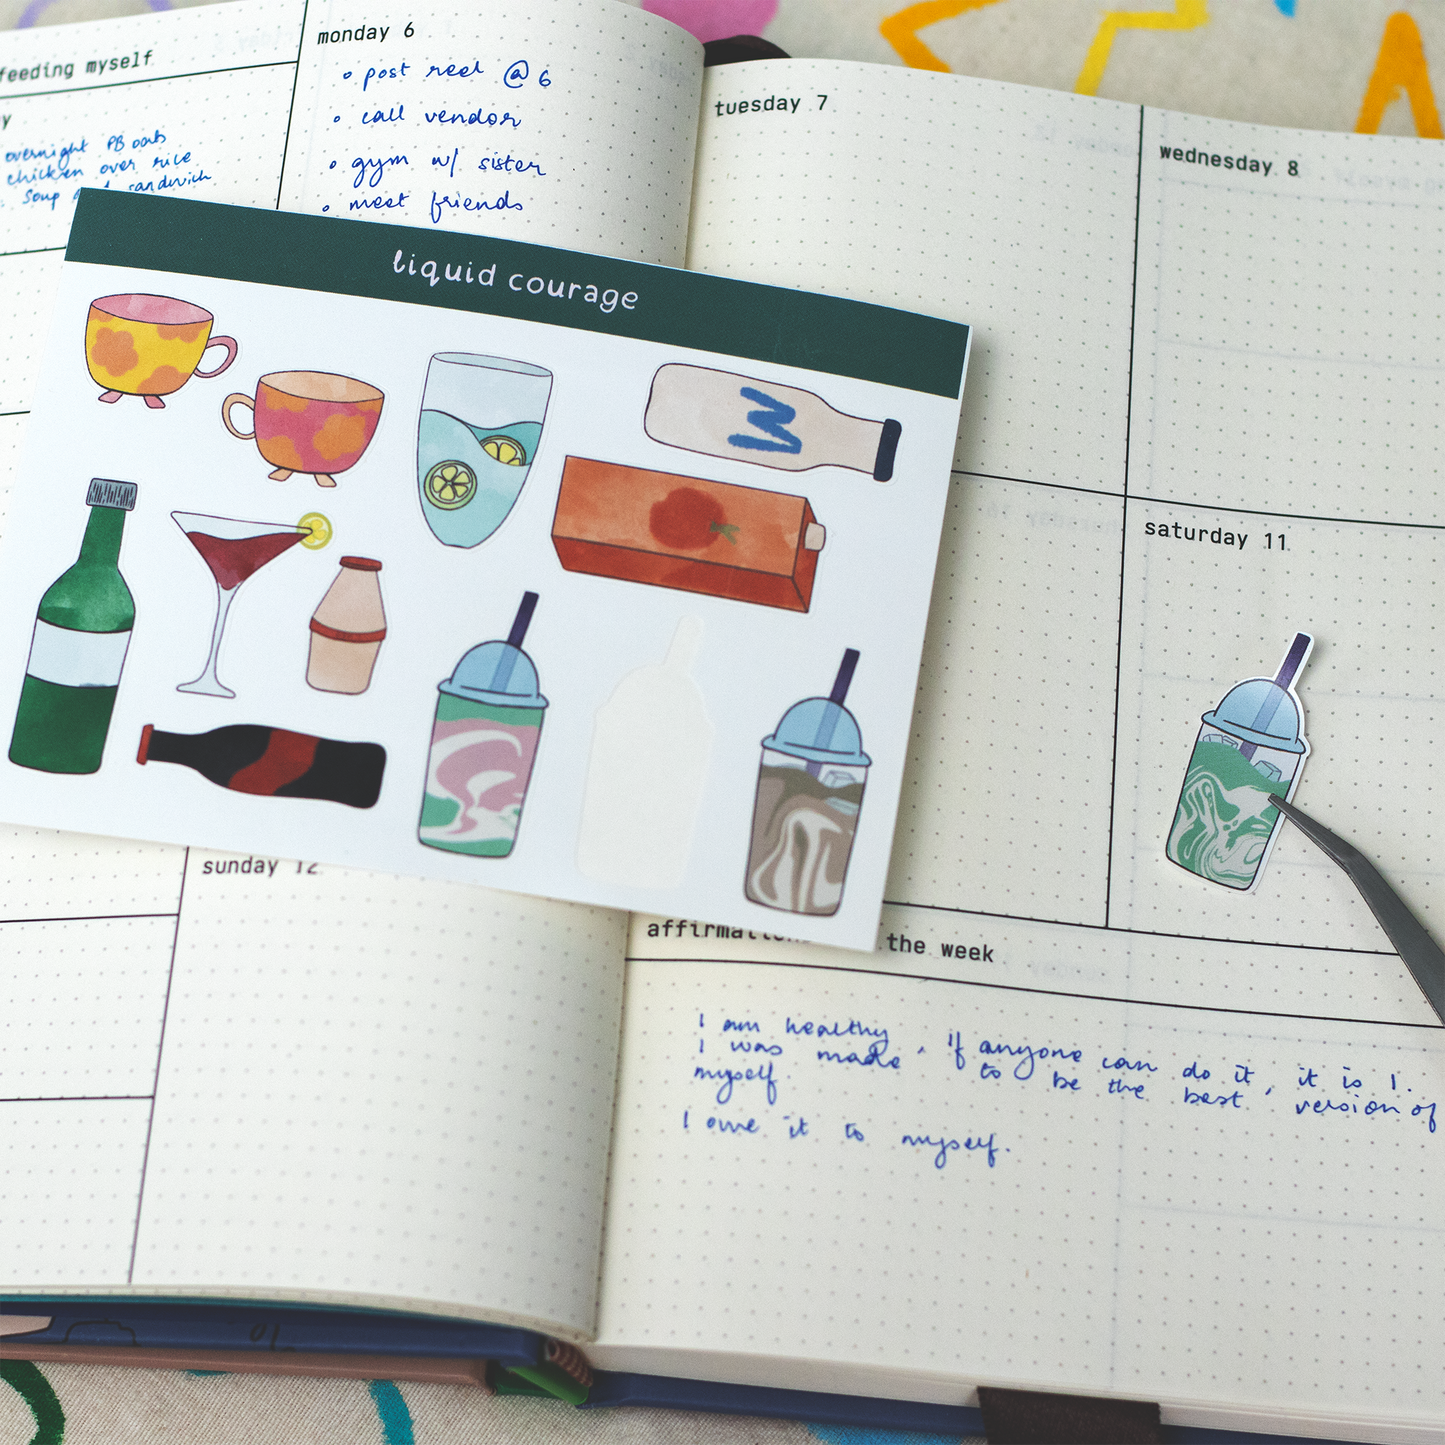 feeding myself
y
overnight PB oats
chicken over rice
soup sandwich
monday 6
post reel @ 6
call vendor
gym w/ sister
meet friends
tuesday 7
wednesday 8
liquid courage
saturday 11
sunday 12
affirmations the week
I am healthy. If anyone can do it, it is I.
I was made to be the best version of
myself
I owe it to myself.